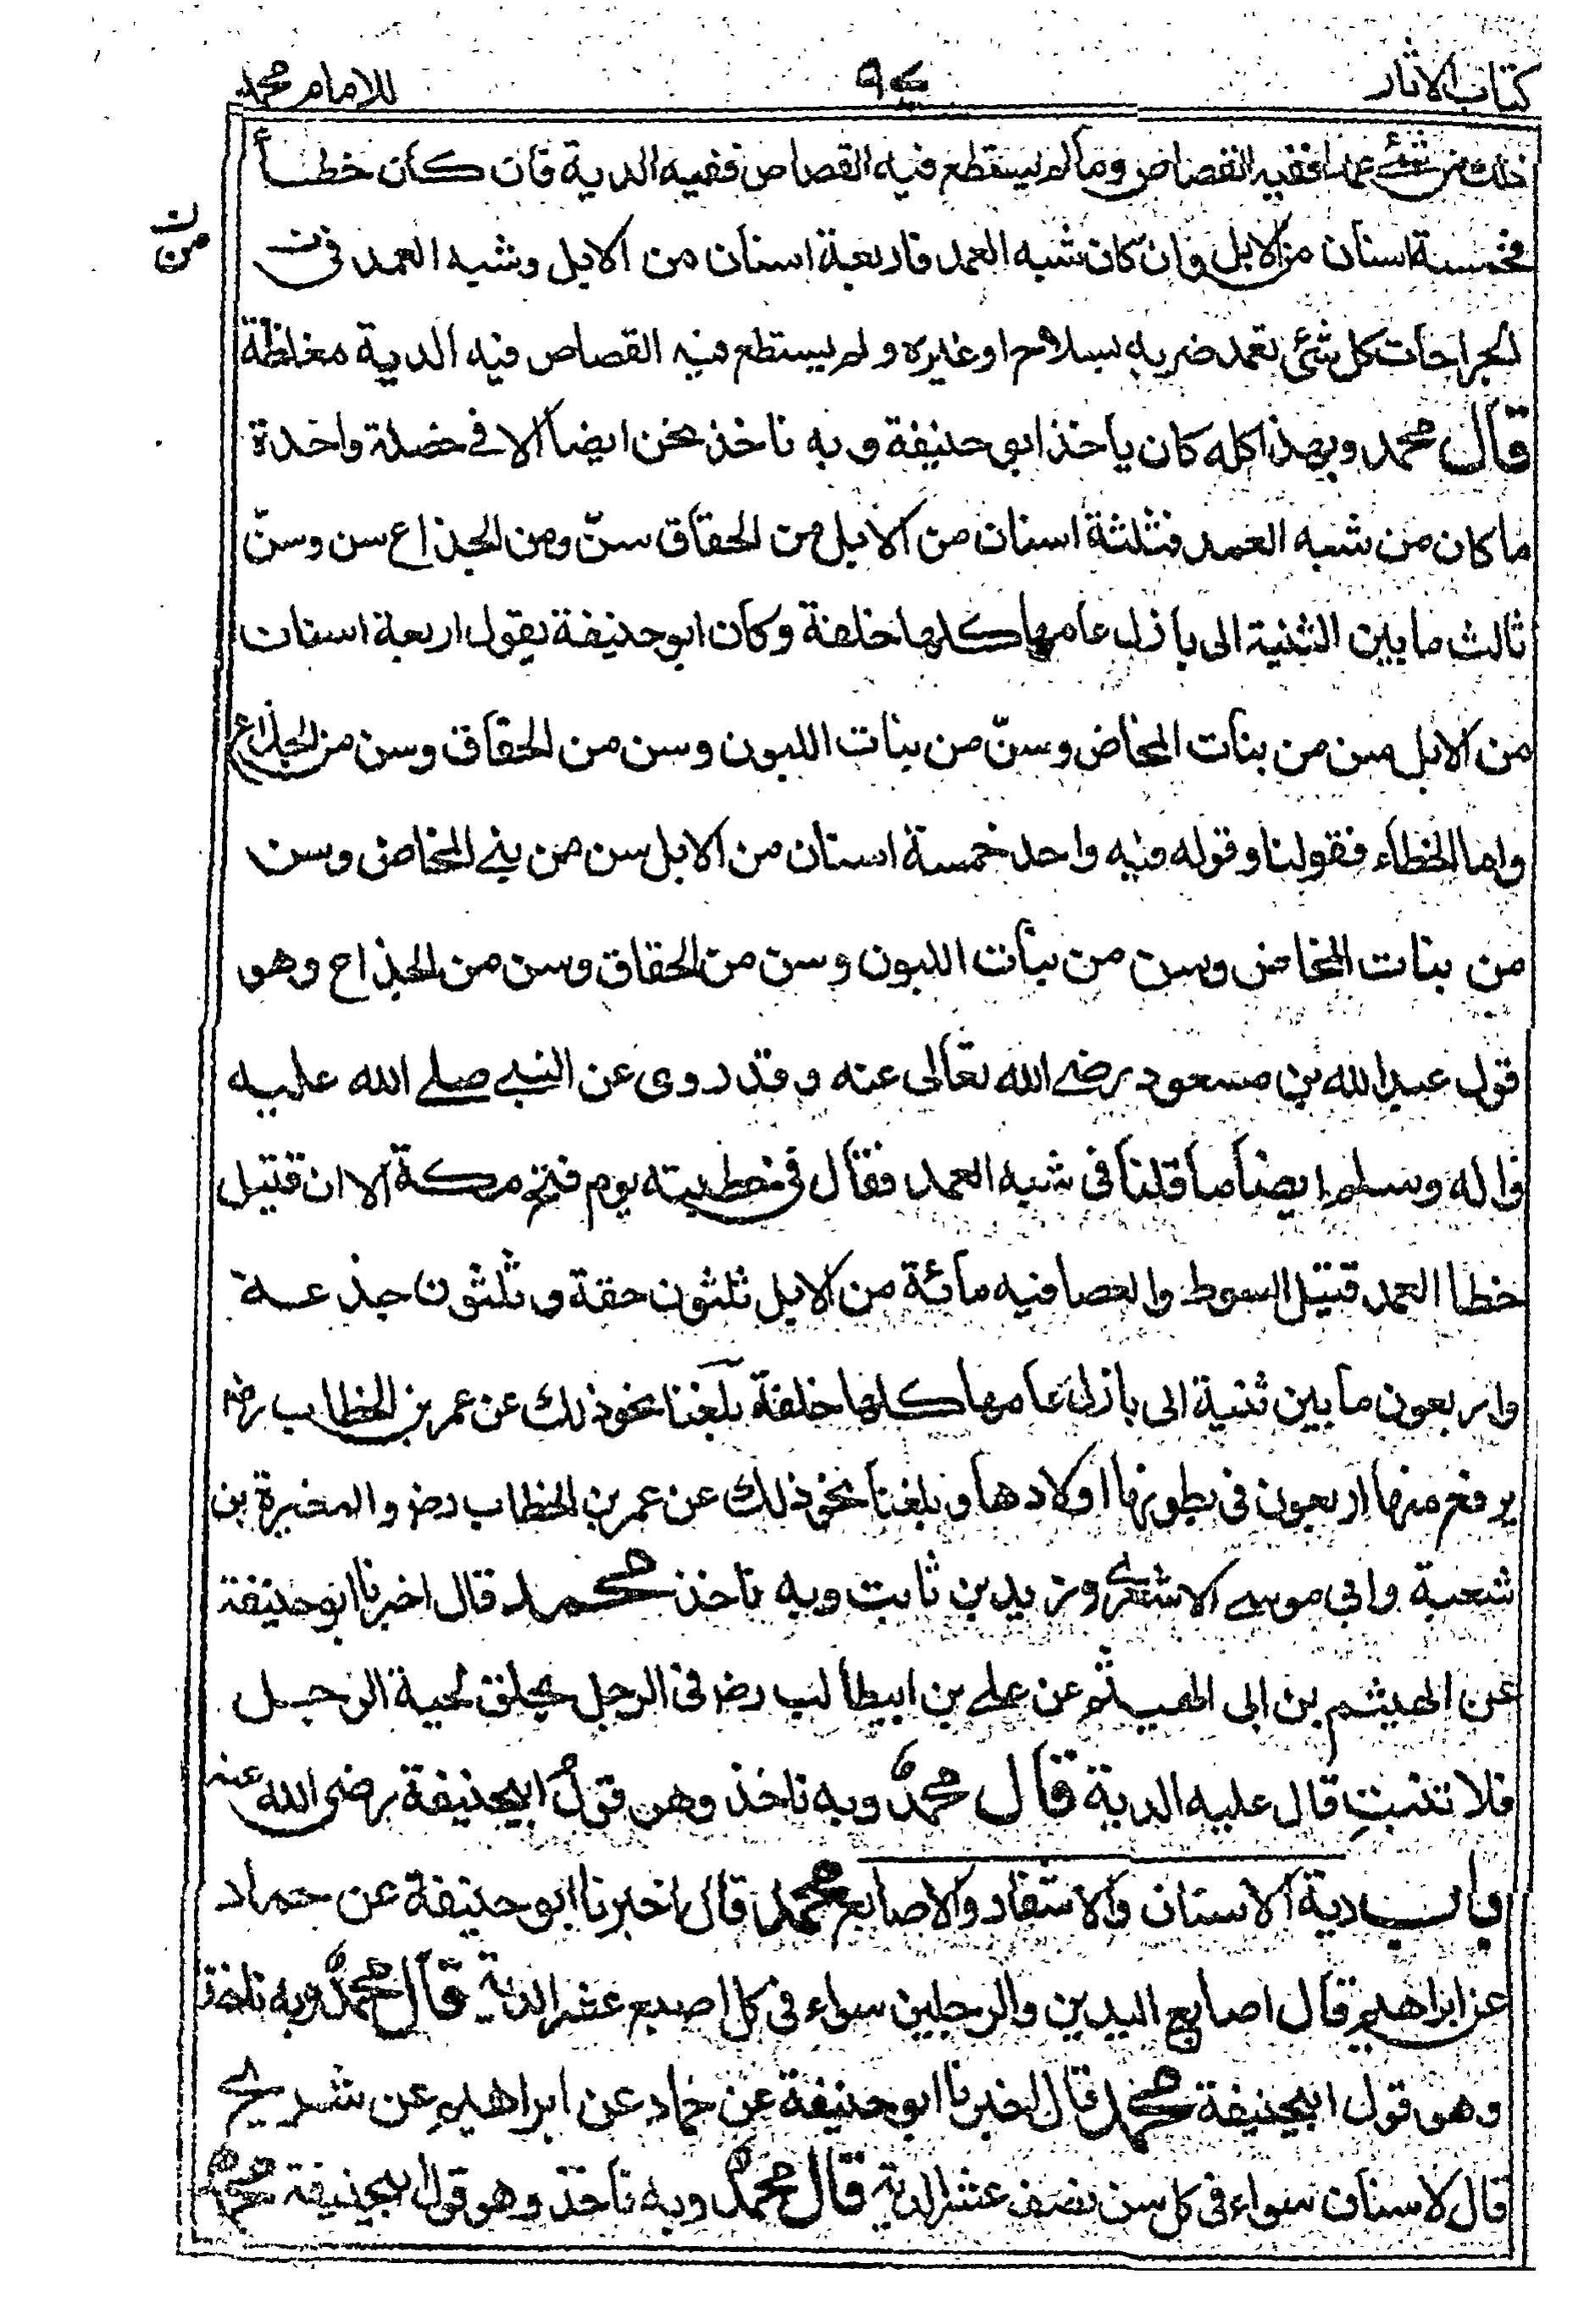 كتاب الآثار
للامام محمد
ذلك من شئ عمدا ففيه القصاص وما لم يستطع فيه القصاص ففيه الدية فان كان خطأ
فخمسة اسنان من الابل وان كان شبه العمد فاربعة اسنان من الابل وشبه العمد فى
ن
من
الجراحات كل شئ تعمد ضربه بسلاح او غيره ولم يستطع فيه القصاص فيه الدية مغلظة
قال محمد وبهذا كله كان ياخذ ابو حنيفة وبه ناخذ نحن ايضا الا فى خصلة واحدة
ما كان من شبه العمد فثلثة اسنان من الابل من الحقاق سنّ ومن الجذاع سن وسنّ
ثالث ما بين الثنية الى بازل عامها كلها خلفة وكان ابو حنيفة يقول اربعة اسنان
من الابل سن من بنات المخاض وسنّ من بنات اللبون وسن من الحقاق وسن من الجذاع
واما الخطاء فقولنا وقوله فيه واحد خمسة اسنان من الابل سن من بنى المخاض وسن
من بنات المخاض وسن من بنات اللبون وسن من الحقاق وسن من الجذاع وهو
قول عبد الله بن مسعود رضى الله تعالى عنه وقد روى عن النبى صلى الله عليه
واله وسلم ايضا ما قلنا فى شبه العمد فقال فى خطبته يوم فتح مكة الا ان قتيل
خطا العمد قتيل السوط والعصا فيه مائة من الابل ثلثون حقة وثلثون جذعة
واربعون ما بين ثنية الى بازل عامها كلها خلفة بلغنا نحو ذلك عن عمر بن الخطاب رض
يرفع منها اربعون فى بطونها اولادها وبلغنا نحو ذلك عن عمر بن الخطاب رض والمغيرة بن
شعبة وابى موسى الاشعرى وزيد بن ثابت وبه ناخذ محمد قال اخبرنا ابو حنيفة
عن الهيثم بن ابى الهيثم عن على بن ابيطالب رض فى الرجل يحلق لحية الرجل
فلا تنبت قال عليه الدية قال محمد وبه ناخذ وهو قول ابيحنيفة رضى الله عنه
باب دية الاسنان والاشفار والاصابع محمد قال اخبرنا ابو حنيفة عن حماد
عن ابراهيم قال اصابع اليدين والرجلين سواء فى كل اصبع عشر الدية قال محمد وبه ناخذ
وهو قول ابيحنيفة محمد قال اخبرنا ابو حنيفة عن حماد عن ابراهيم عن شريح
قال لاسنان سواء فى كل سن نصف عشر الدية قال محمد وبه ناخذ وهو قول ابيحنيفة محمد